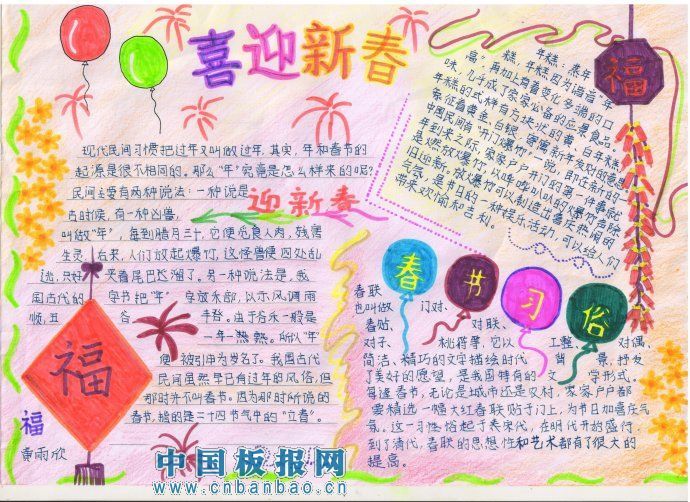 喜迎新春
现代民间习惯把过年又叫做过年。其实,年和春节的
起源是很不相同的。那么"年"究竟是怎么样来的呢?
民间主要有两种说法:一种说是
古时候,有一种凶兽,
叫做"年",每到腊月三十,它便觅食人肉,残害
生灵。后来,人们放起爆竹,这怪兽便四处乱
逃,只好夹着尾巴吃溜了。另一种说法是,我
国古代的字书把"年"字放禾部,以示风调雨
顺,五谷丰登。由于谷禾一般是
一年一熟。所以"年"
便被引申为岁名了。我国古代
民间虽然早已有过年的风俗,但
那时并不叫春节。因为那时所说的
春节,指的是二十四节气中的"立春"。
迎新春
年糕:蒸年
糕,年糕因为谐音"年
高",再加上有着变化多端的口
味,几乎成了家家必备的应景食品。
年糕的式样有方块状的黄、白年糕,
象征着黄金、白银,寄寓新年发财的意思
中国民间有"开门爆竹"一说,即在新的一
年到来之际,家家户户开门的第一件事就
是燃放爆竹,以哔哔叭叭的爆竹声除
旧迎新。放爆竹可以制造出喜庆热闹的
气氛,是节日的一种娱乐活动,可以给人们
带来欢愉和吉利。
福
春节习俗
春联
也叫做门对、
春贴、对联、
对子、桃符等,它以工整、对偶、
简洁、精巧的文字描绘时代背景,抒发
了美好的愿望,是我国特有的文学形式。
每逢春节,无论是城市还是农村,家家户户都
要精选一幅大红春联贴于门上,为节日加喜庆气
氛。这一习俗起于宋代,在明代开始盛行,
到了清代,春联的思想性和艺术都有了很大的
提高。
福
福
黄雨欣
中国板报网
www.cnbanbao.cn